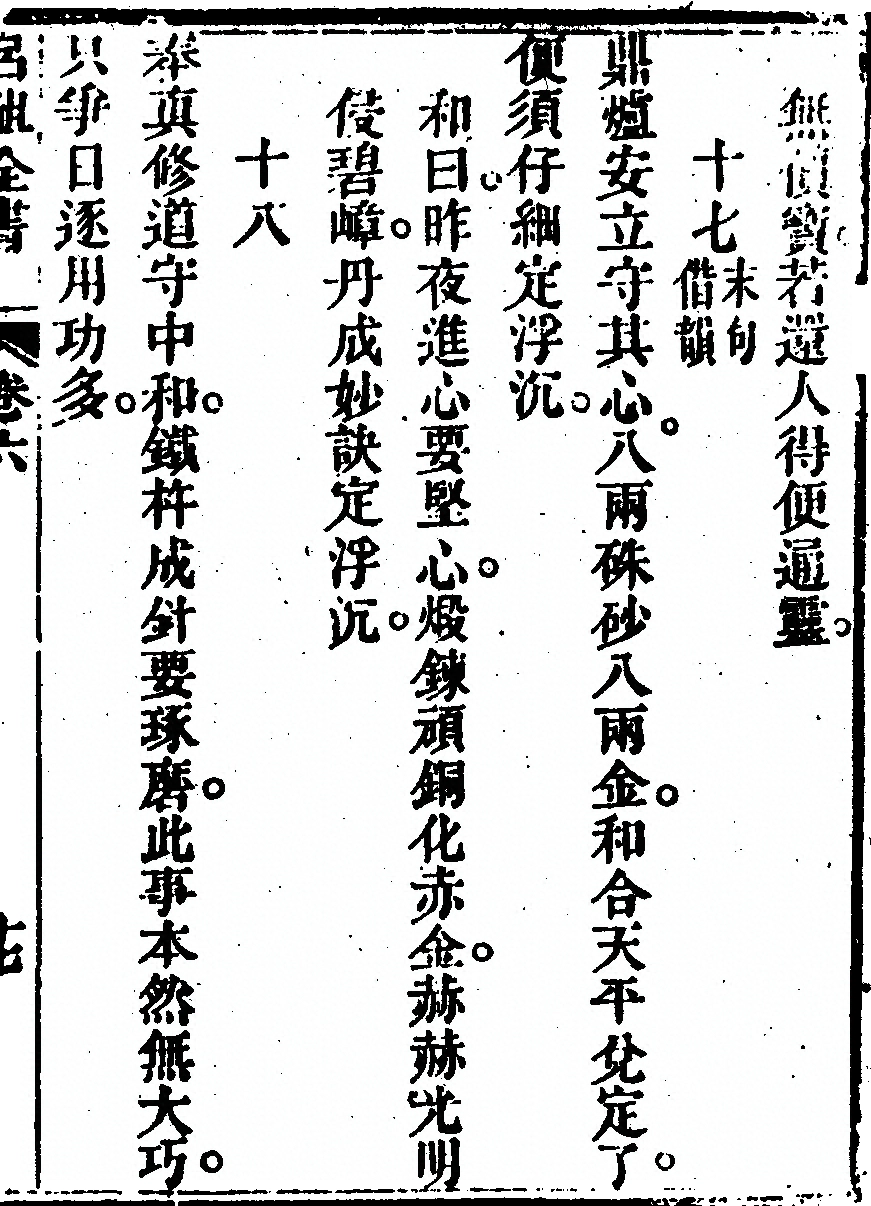 無價寶若還人得便通靈
十七末句偕韻
鼎爐安立守其心八兩硃砂八兩金和合天平兌定了
便須仔細定浮沉
和曰昨夜進心要堅心煅鍊頑銅化赤金赫赫光明
侵碧嶂丹成妙訣定浮沉
十八
奉真修道守中和鐵杵成針要琢磨此事本然無大巧
只爭日逐用功多
呂祖全書 卷六